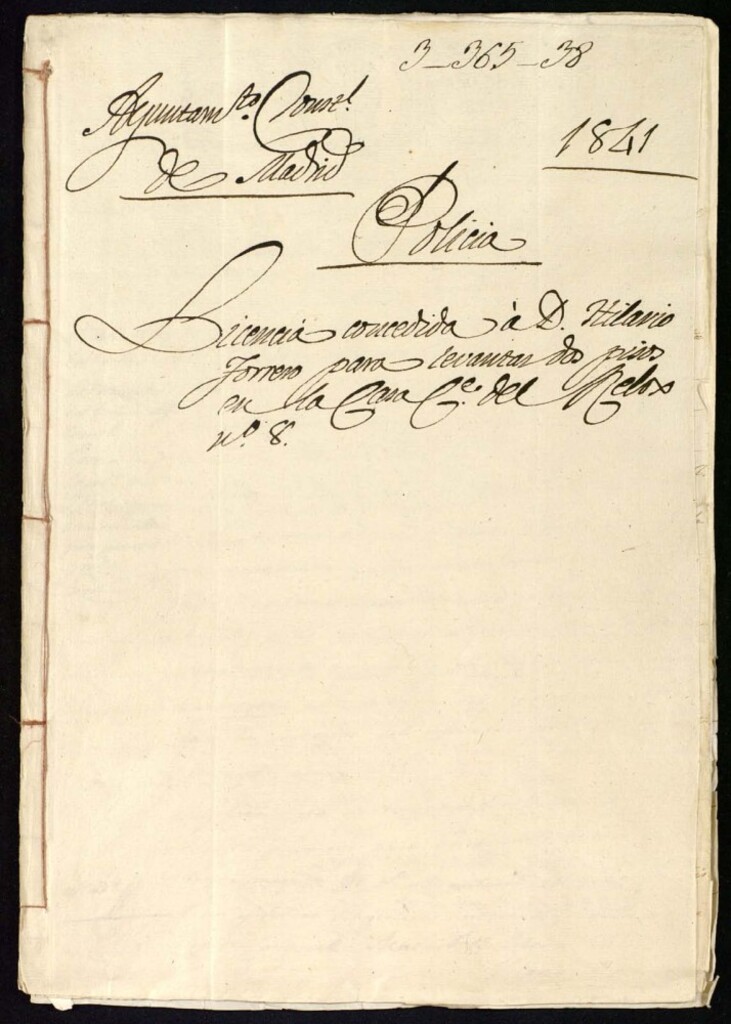 3-365-38
Ayuntamto. Constl.
de Madrid
1841
Policia
Licencia concedida à D. Hilario
Torrero para levantar dos pisos
en la Casa Ce. del Relox
nº. 8.